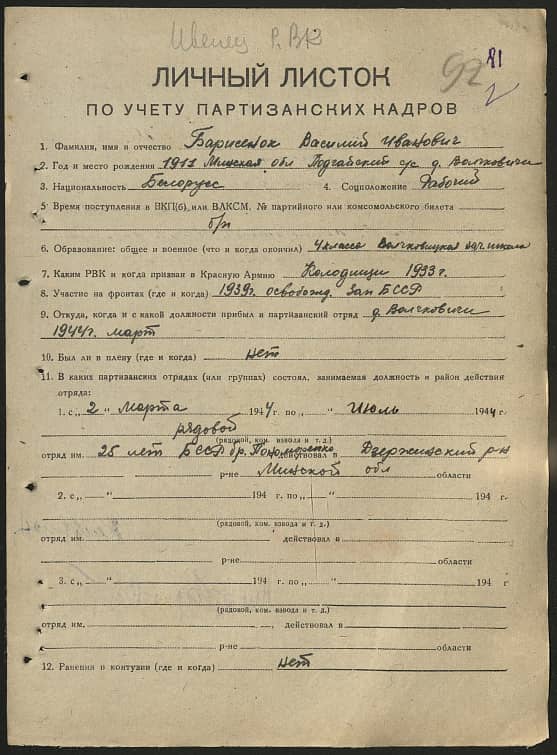 Ивенец РВК
92 81
2
ЛИЧНЫЙ ЛИСТОК
ПО УЧЕТУ ПАРТИЗАНСКИХ КАДРОВ
1. Фамилия, имя и отчество Барисенок Василий Иванович
2. Год и место рождения 1911 Минская обл Подгайский с/с д. Волчковичи
3. Национальность Белорусс 4. Соцположение Рабочий
5. Время поступления в ВКП(б) или ВЛКСМ, № партийного или комсомольского билета
б/п
6. Образование: общее и военное (что и когда окончил) 4 класса Волчковицкая школа
7. Каким РВК и когда призван в Красную Армию Колодищи 1933 г.
8. Участие на фронтах (где и когда) 1939г. освобожд. Зап БССР
9. Откуда, когда и с какой должности прибыл и партизанский отряд д. Волчковичи
1944г. март
10. Был ли в плену (где и когда) нет
11. В каких партизанских отрядах (или группах) состоял, занимаемая должность и район действия
отряда:
1. с „ 2 “ Марта 1944 г. по „ “ Июль 1944 г.
рядовой
(рядовой, ком. взвода и т. д.)
отряд им. 25 лет БССР бр. Пономаренко действовал в Дзержинский р-н
р-не Минской обл области
2. с „ — “ 194 г. по „ “ 194 г.
(рядовой, ком. взвода и т. д.)
отряд им. действовал в
р-не области
3. с „ “ 194 г. по „ “ 194 г
(рядовой, ком. взвода и т. д.)
отряд им. , действовал в
р-не области
12. Ранения и контузии (где и когда) нет